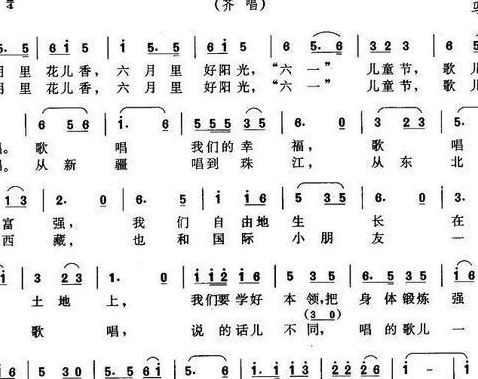 (齐唱)
5. 5 | 6 i 5 | i 5. 5 | 6 i 5 | 6 5. 6 | 3 2 3 | 6 5
月里 花儿香, 六 月里 好阳光, “六 一” 儿童节, 歌儿
月里 花儿香, 六 月里 好阳光, “六 一” 儿童节, 歌儿
| 6 5 6 | i. 6 | 5 5 5 3 5 | 6. 0 | 3 2 3 | 5
唱。 歌 唱 我们的幸 福, 歌 唱
唱。 从新 疆 唱到珠 江, 从东 北
1 3 | 2. 0 | 6. 5 | i i i 6 | 5 3 5 | 6. 0 |
富 强, 我 们 自由地 生 长 在
西 藏, 也 和 国际小 朋 友 一
i | 3 2 3 | 1. 0 | i i i 2 i 6 | 5 3 5 | 6. 5 3 5 | 6
土地 上, 我们要学好 本 领,把 身体锻炼 强
(3 0)
歌 唱, 说的话儿 不同, 唱的歌儿 一
i 6 | 5 3 0 | 5. i | 5. 6 | i. i i 3 | 2 2 2 6 | i - | i